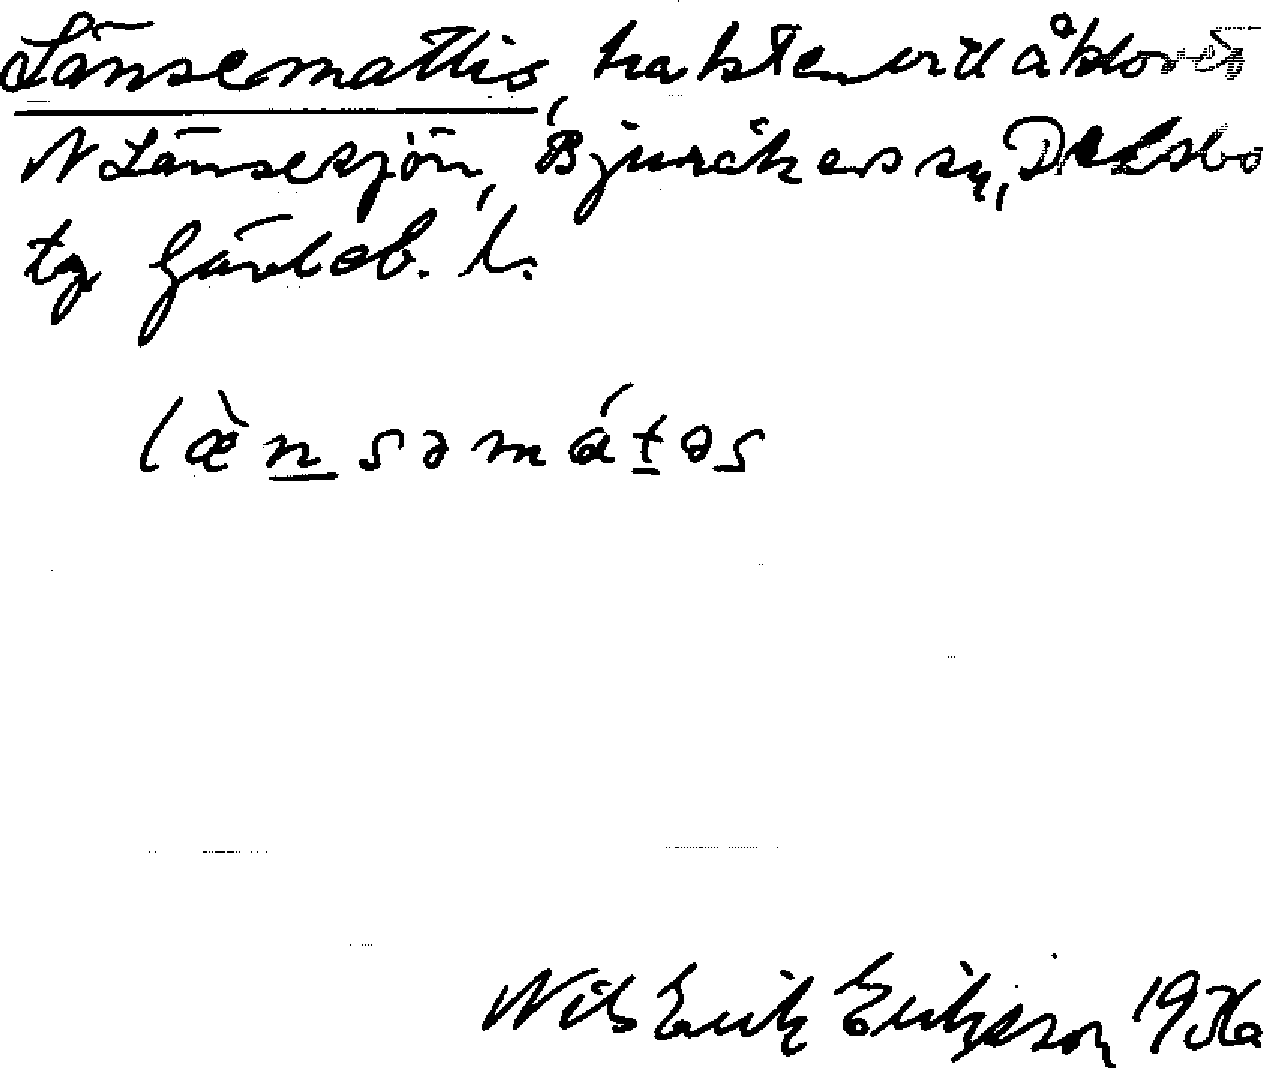 Länsemattis, trakten vid åklov
N Länsesjön, Bjuråkers sn, Delsbo
tg Gävleb. l.
læ̀nsəmátəs
Nils Erik Eriksson 1936